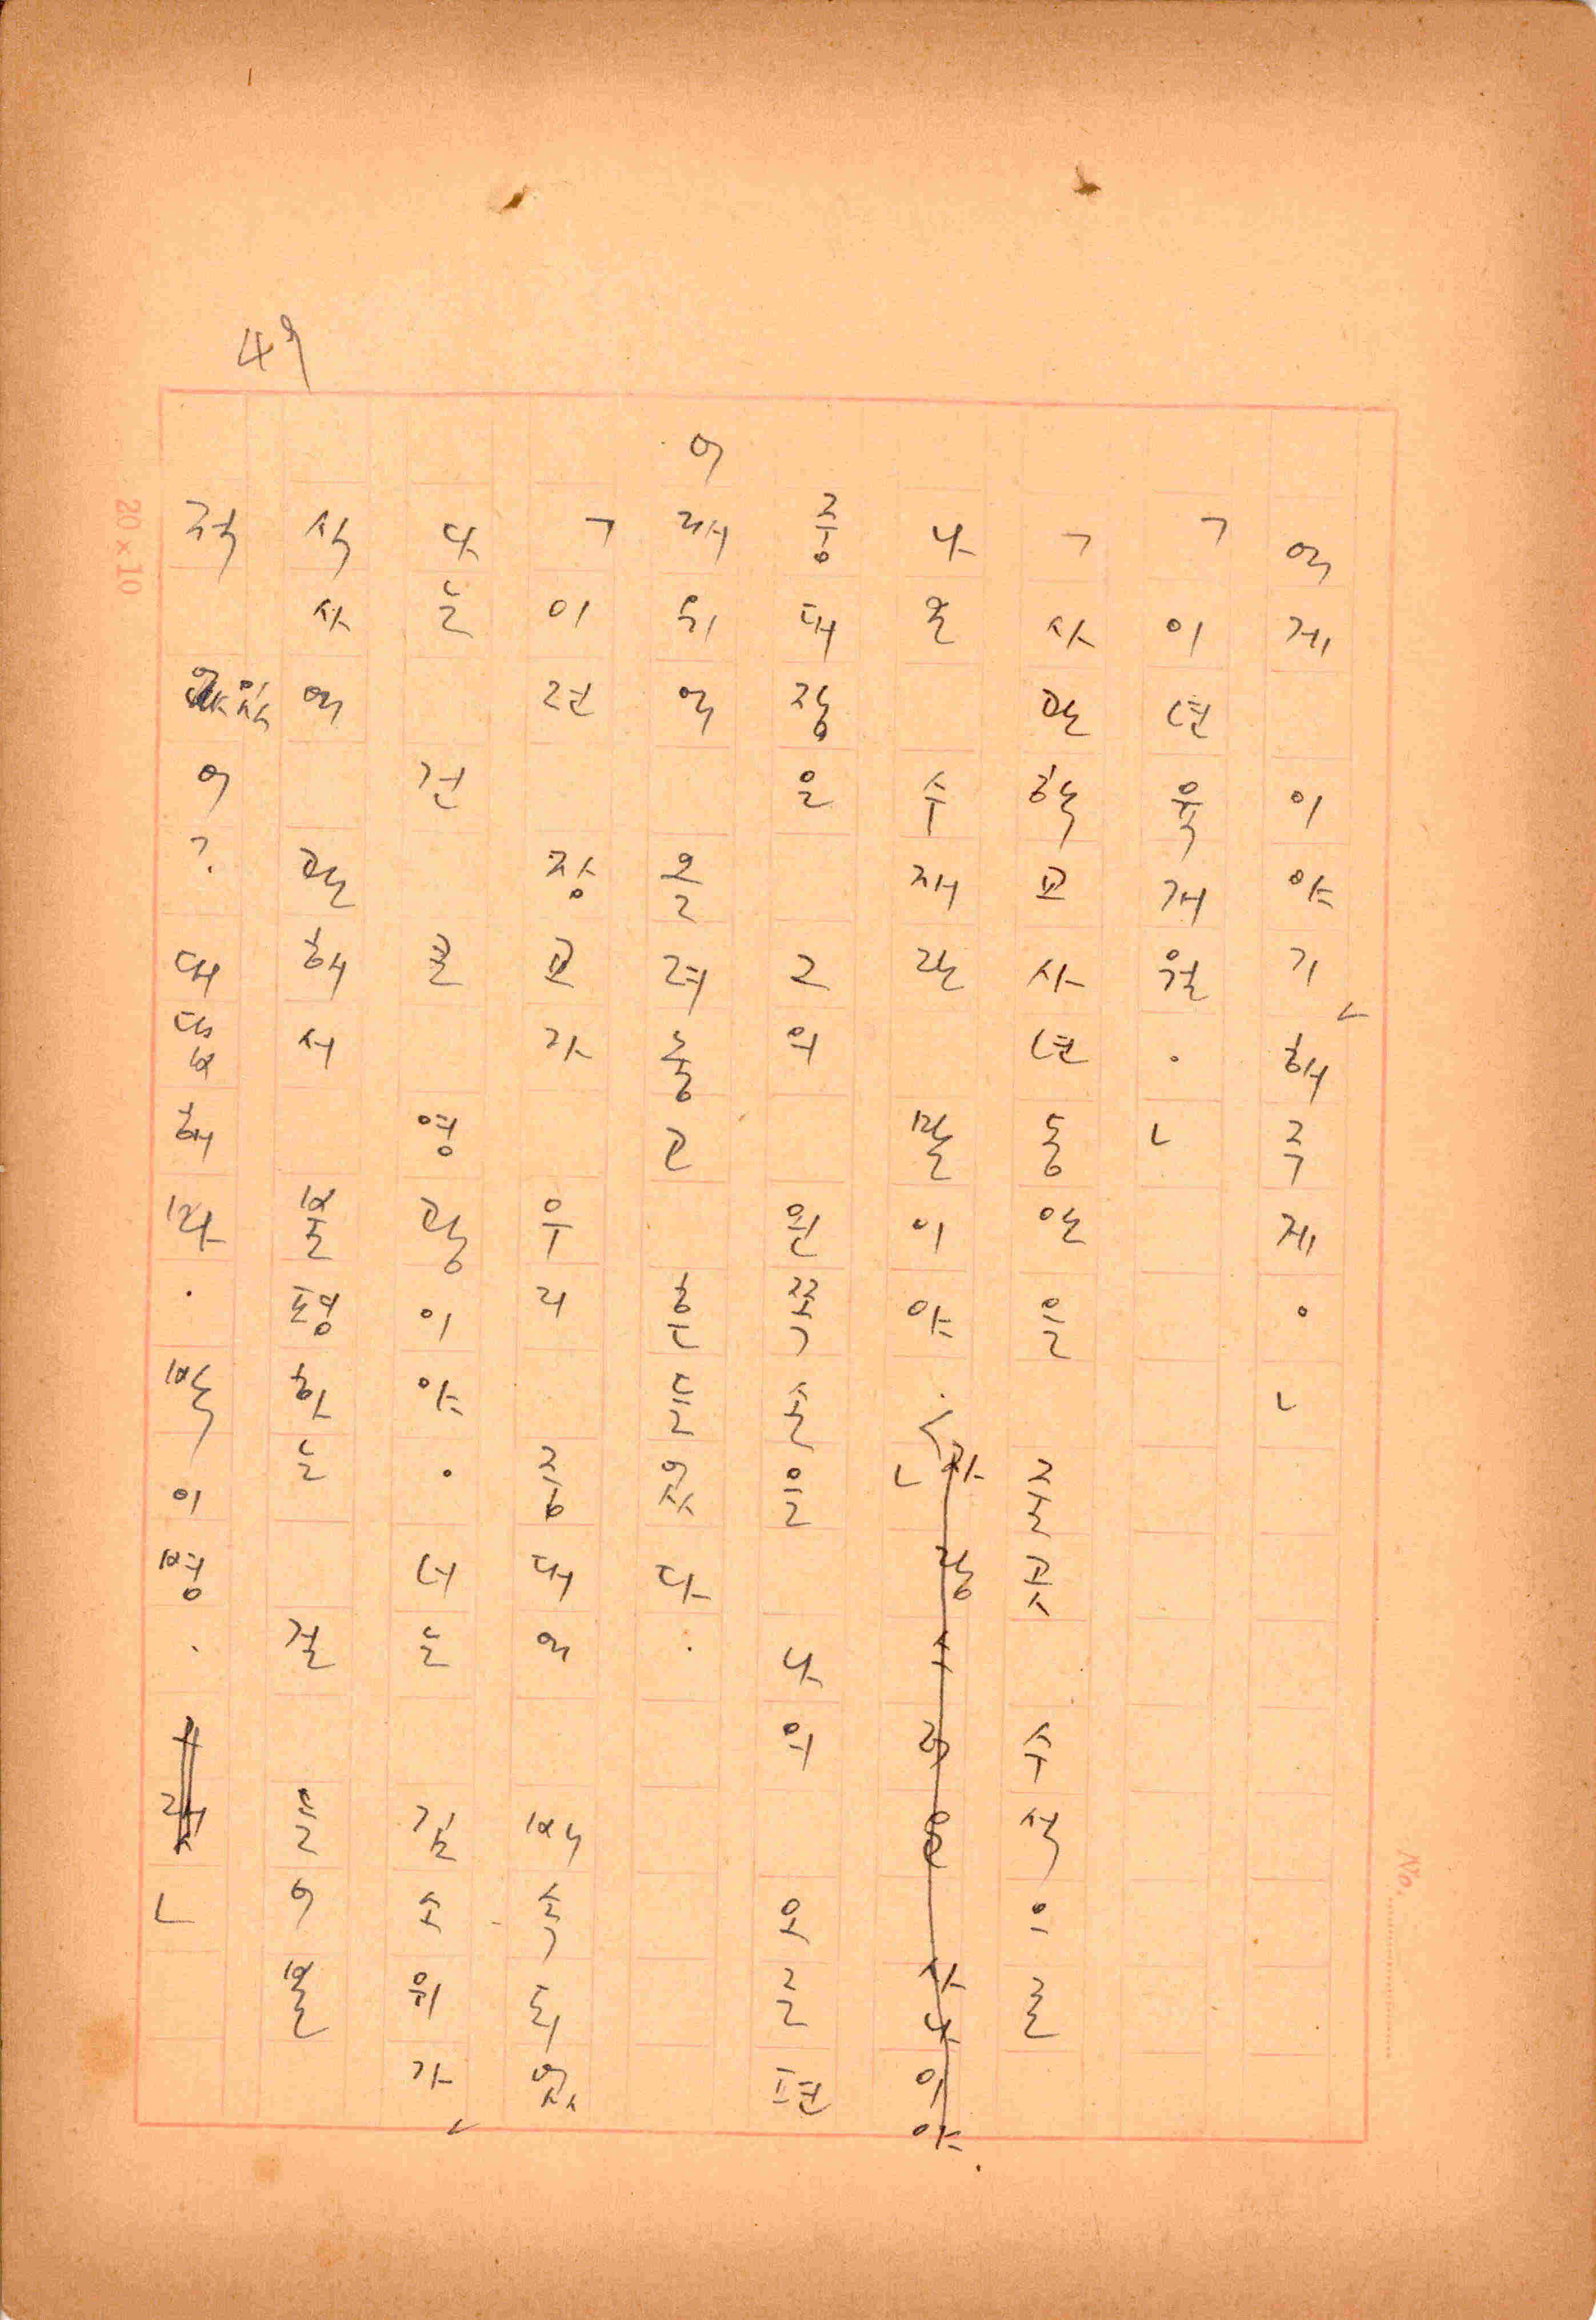 49
에게 이야기 해주게。」
「이년 육개월.」
「사관학교 사년 동안을 줄곳 수석으로
나온 수재란 말이야.」 자랑스러운 사나이야.
중대장은 그의 왼쪽 손을 나의 오른편
어깨 위에 올려놓고 흔들었다.
「이런 장교가 우리 중대에 배속되었
다는 건 큰 영광이야. 너는 김소위가
식사에 관해서 불평하는 걸 들어본
적 있어? 대답해봐. 박이병.」
20×10
No.